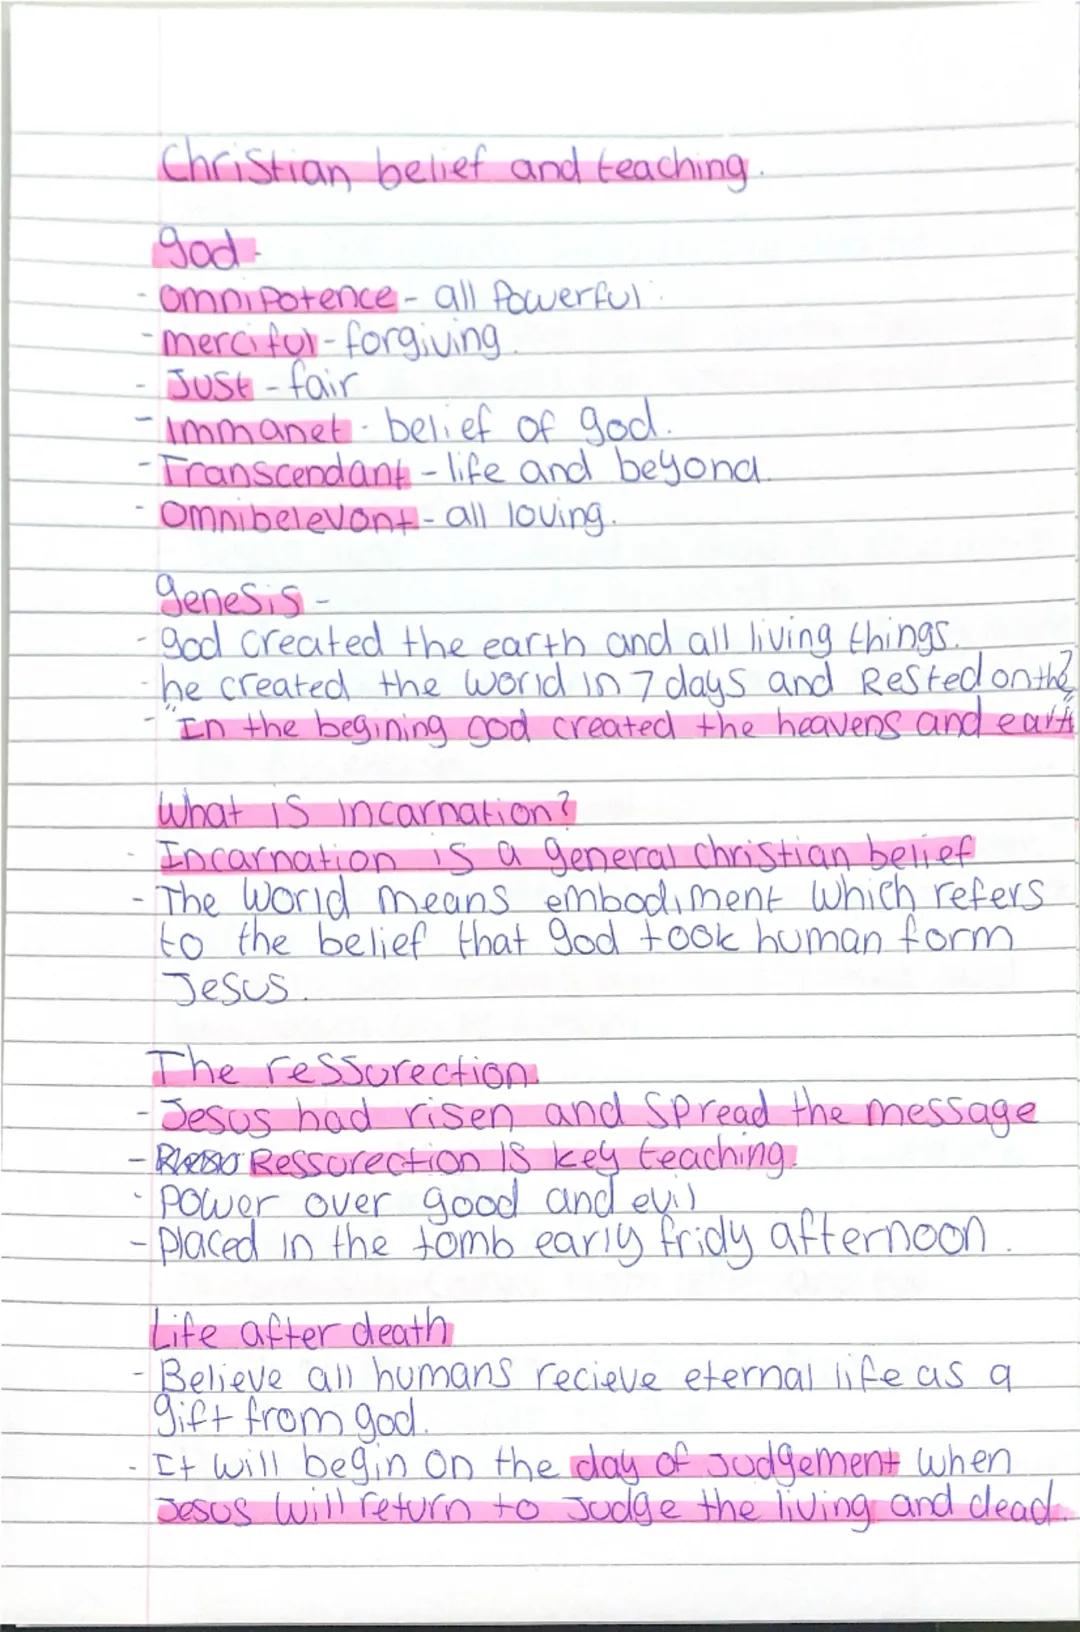 Christian belief and teaching.
god-
- omnipotence - all powerful.
- merciful - forgiving.
- Just - fair
- Immanet - belief of god.
- Transcendant - life and beyond.
- Omnibelevont - all loving.
genesis -
- god created the earth and all living things.
- he created the world in 7 days and Rested on the 7
- "In the begining god created the heavens and earth"
What is incarnation?
- Incarnation is a general christian belief
- The world means embodiment which refers
to the belief that god took human form
Jesus.
The ressurection.
- Jesus had risen and spread the message
- Ressurection is key teaching.
- power over good and evil
- placed in the tomb early fridy afternoon.
Life after death
- Believe all humans recieve eternal life as a
gift from god.
- It will begin on the day of judgement when
Jesus will return to judge the living and dead.